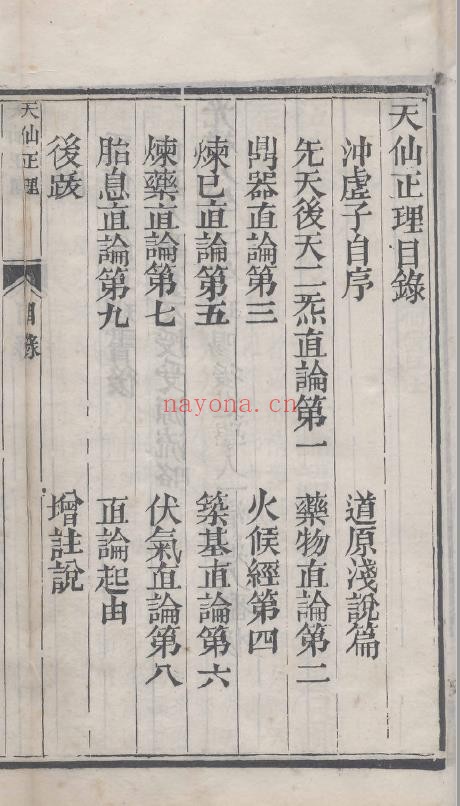 天仙正理目錄
沖虛子自序 道原淺說篇
先天後天二炁直論第一 藥物直論第二
鼎器直論第三 火候經第四
煉己直論第五 築基直論第六
煉藥直論第七 伏氣直論第八
胎息直論第九 直論起由
後跋 增註說
天仙正理 目錄
nayona.cn